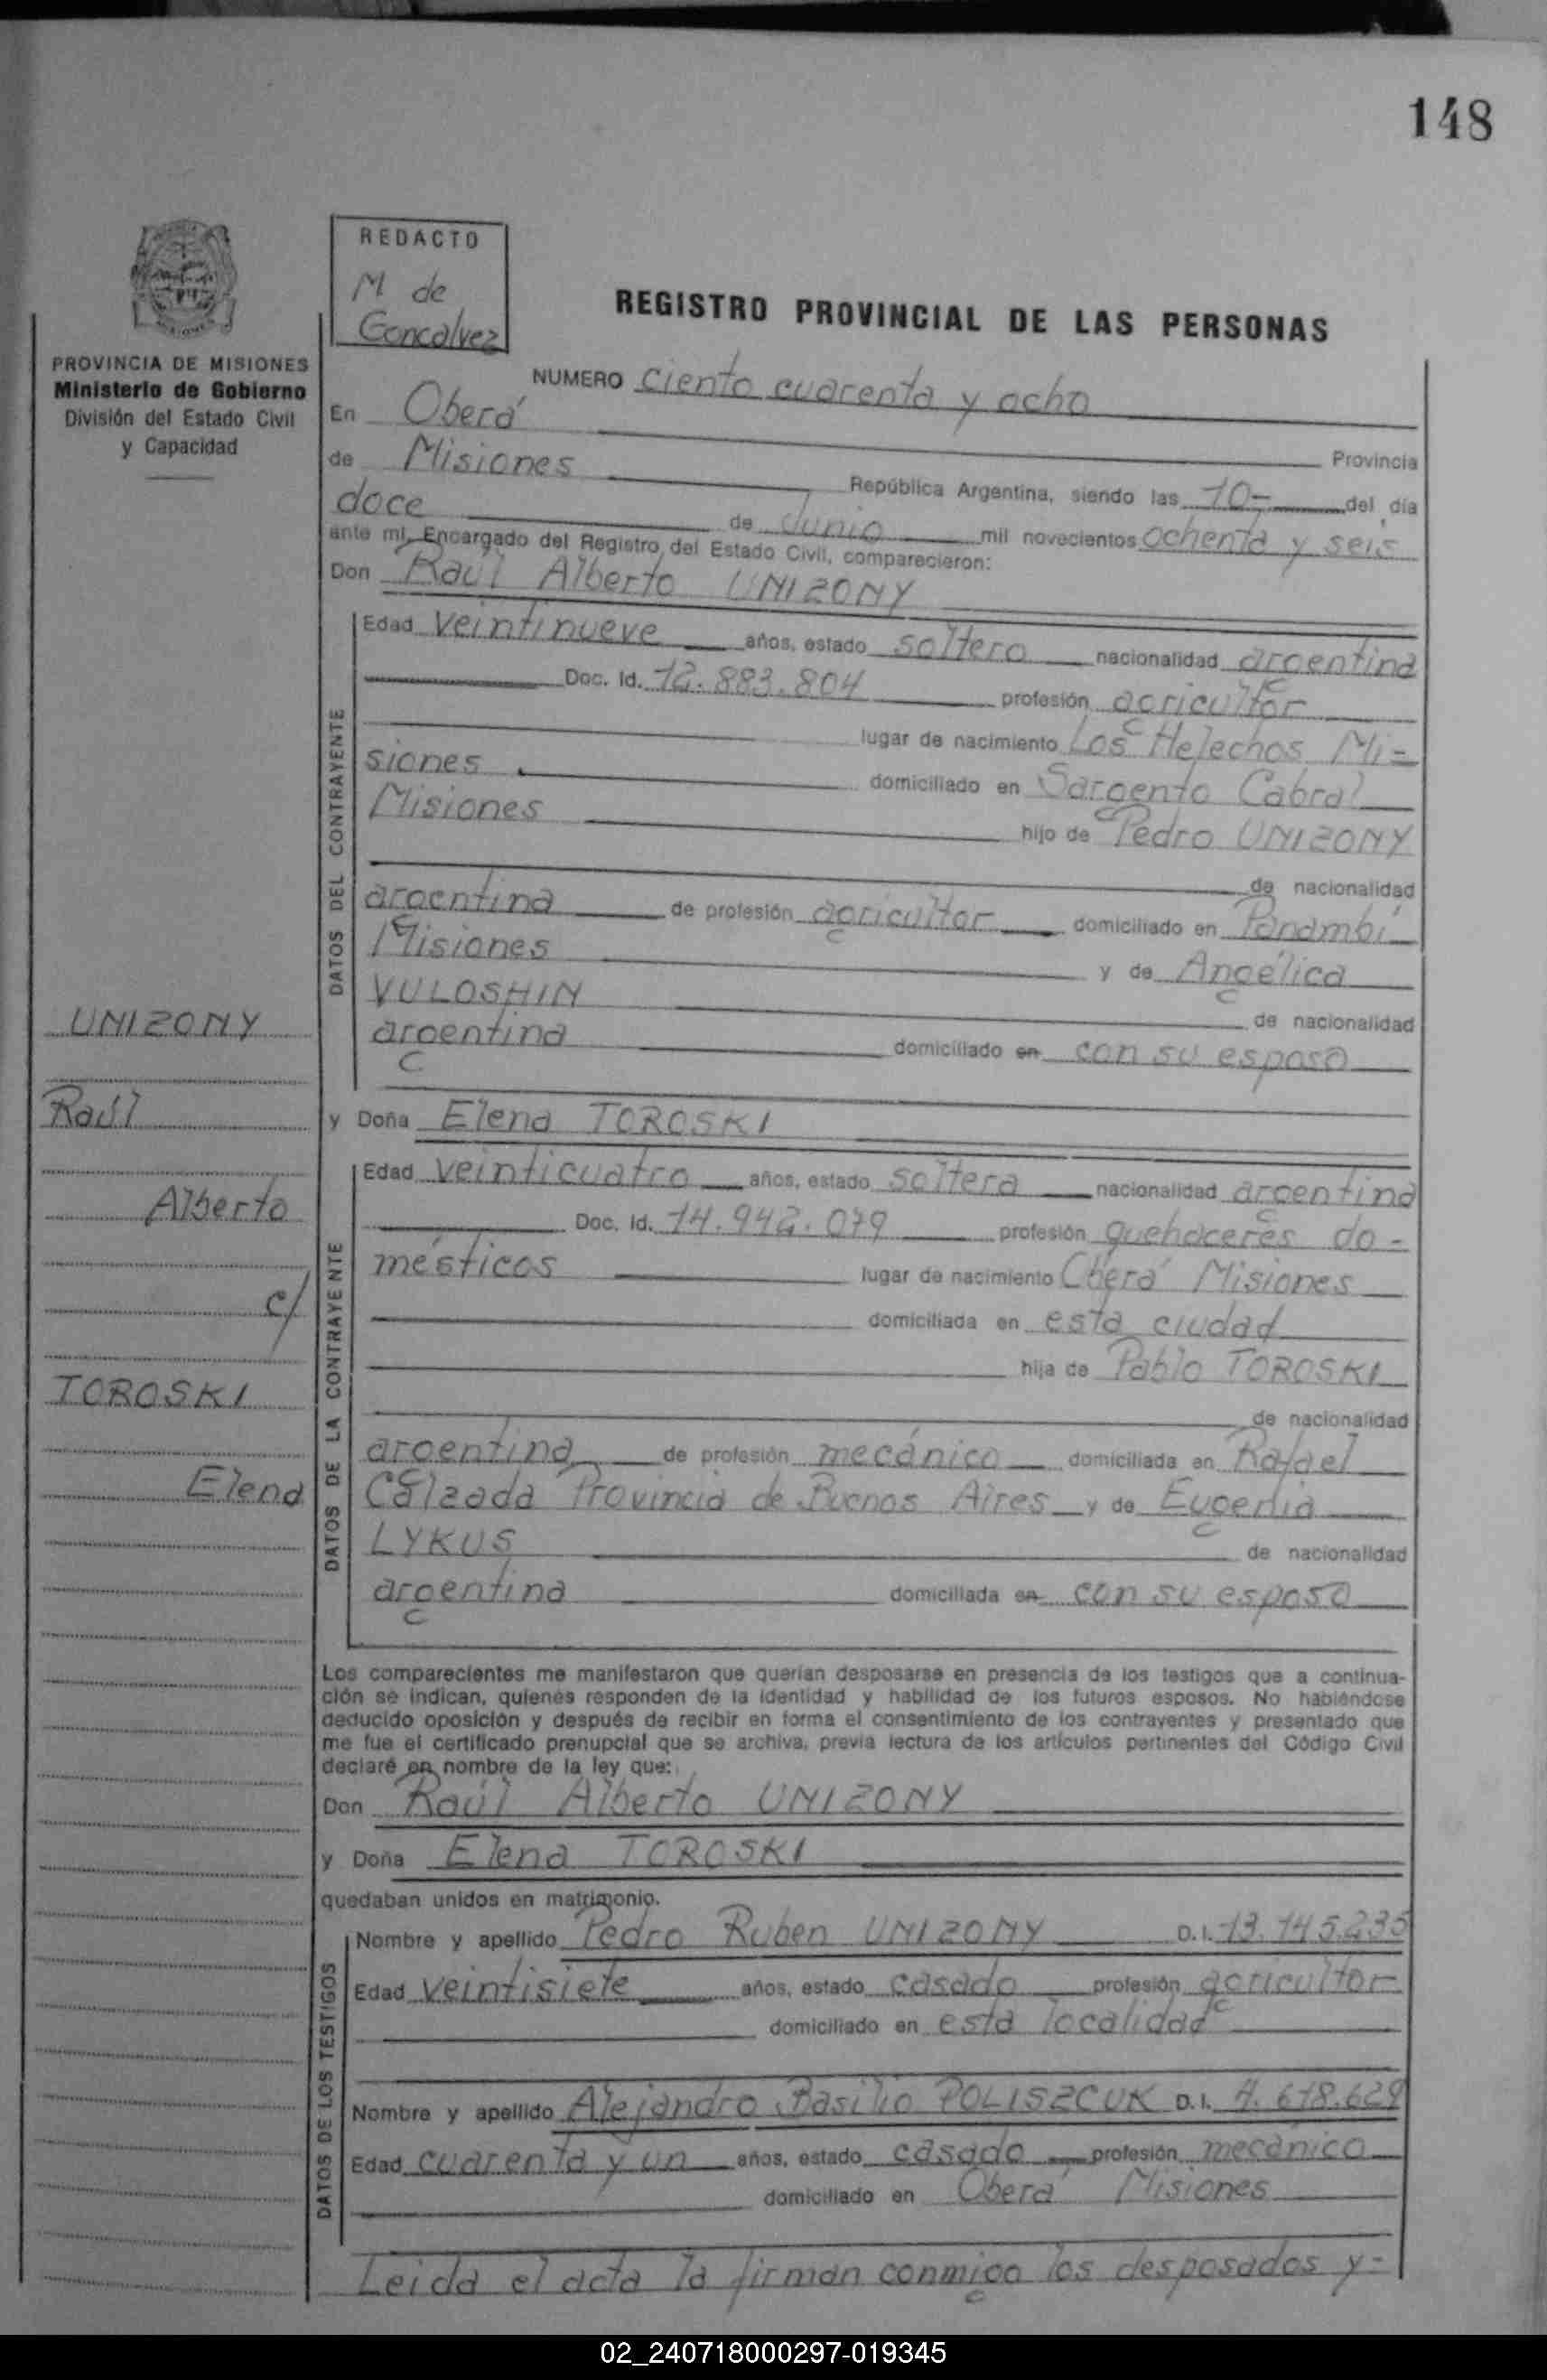 148
REDACTO
M de
Goncalvez
REGISTRO PROVINCIAL DE LAS PERSONAS
PROVINCIA DE MISIONES
Ministerio de Gobierno
División del Estado Civil
y Capacidad
NUMERO ciento cuarenta y ocho
En Oberá
Provincia
de Misiones República Argentina, siendo las 10- del día
doce de Junio mil novecientos ochenta y seis
ante mí, Encargado del Registro del Estado Civil, comparecieron:
Don Raúl Alberto UNIZONY
DATOS DEL CONTRAYENTE
Edad veintinueve años, estado soltero nacionalidad argentina
Doc. Id. 12.883.804 profesión agricultor
lugar de nacimiento Los Helechos Mi=
siones domiciliado en Sargento Cabral
Misiones hijo de Pedro UNIZONY
de nacionalidad
argentina de profesión agricultor domiciliado en Panambí
Misiones y de Angélica
VULOSHIN de nacionalidad
argentina domiciliado en con su esposo
UNIZONY
Raúl
Alberto
c/
TOROSKI
Elena
y Doña Elena TOROSKI
DATOS DE LA CONTRAYENTE
Edad veinticuatro años, estado soltera nacionalidad argentina
Doc. Id. 14.942.079 profesión quehaceres do-
mésticos lugar de nacimiento Oberá Misiones
domiciliada en esta ciudad
hija de Pablo TOROSKI
de nacionalidad
argentina de profesión mecánico domiciliada en Rafael
Calzada Provincia de Buenos Aires y de Eugenia
LYKUS de nacionalidad
argentina domiciliada en con su esposo
Los comparecientes me manifestaron que querían desposarse en presencia de los testigos que a continua-
ción se indican, quienes responden de la identidad y habilidad de los futuros esposos. No habiéndose
deducido oposición y después de recibir en forma el consentimiento de los contrayentes y presentado que
me fue el certificado prenupcial que se archiva, previa lectura de los artículos pertinentes del Código Civil
declaré en nombre de la ley que:
Don Raúl Alberto UNIZONY
y Doña Elena TOROSKI
quedaban unidos en matrimonio.
DATOS DE LOS TESTIGOS
Nombre y apellido Pedro Ruben UNIZONY D.I. 13.145.235
Edad veintisiete años, estado casado profesión agricultor
domiciliado en esta localidad
Nombre y apellido Alejandro Basilio POLISZCUK D.I. 4.678.629
Edad cuarenta y un años, estado casado profesión mecánico
domiciliado en Oberá Misiones
Leida el acta la firman conmigo los desposados y-
02_240718000297-019345